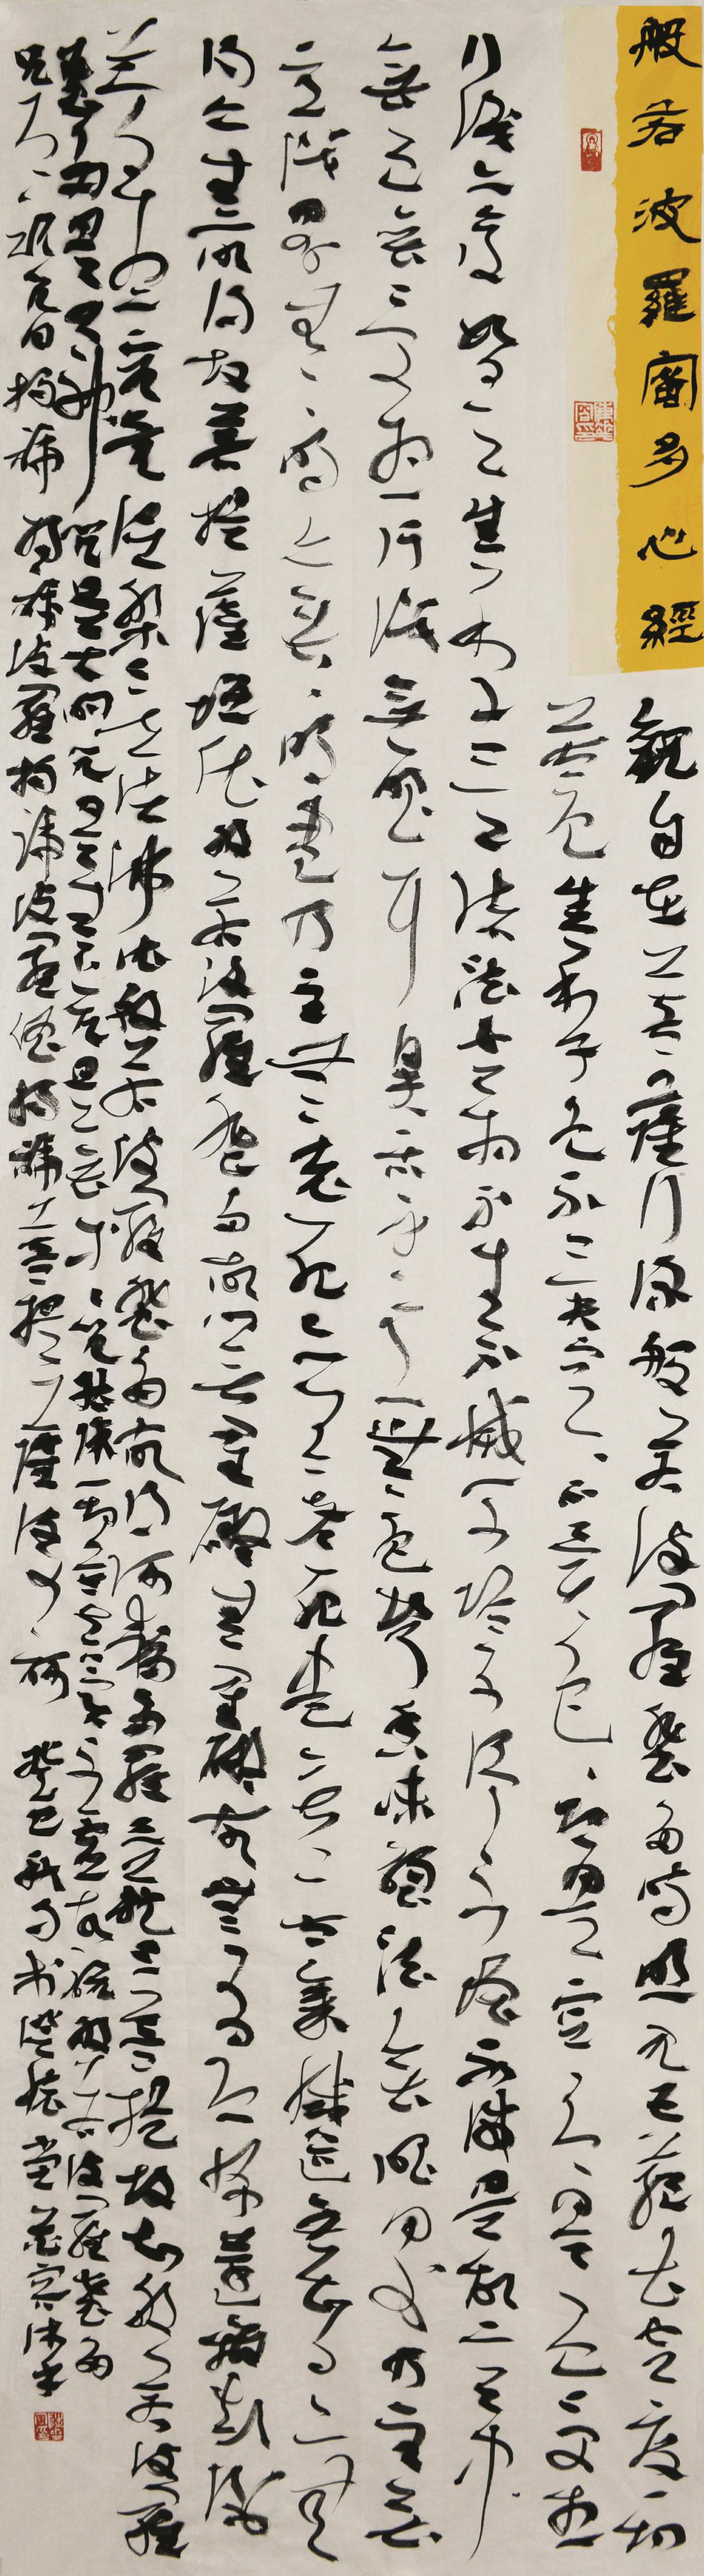 般若波羅蜜多心經
觀自在菩薩行深般若波羅蜜多時照見五蘊皆空度一切
苦厄舍利子色不異空空不異色色即是空空即是色受想
行識亦復如是舍利子是諸法空相不生不滅不垢不淨不增不減是故空中
無色無受想行識無眼耳鼻舌身意無色聲香味觸法無眼界乃至無
意識界無無明亦無無明盡乃至無老死亦無老死盡無苦集滅道無智亦無
得以無所得故菩提薩埵依般若波羅蜜多故心無罣礙無罣礙故無有恐怖遠離顛倒
夢想究竟涅槃三世諸佛依般若波羅蜜多故得阿耨多羅三藐三菩提故知般若波羅
蜜多是大神咒是大明咒是無上咒是無等等咒能除一切苦真實不虛故說般若波羅蜜多
咒即說咒曰揭諦揭諦波羅揭諦波羅僧揭諦菩提薩婆訶 癸巳秋月於澄懷堂